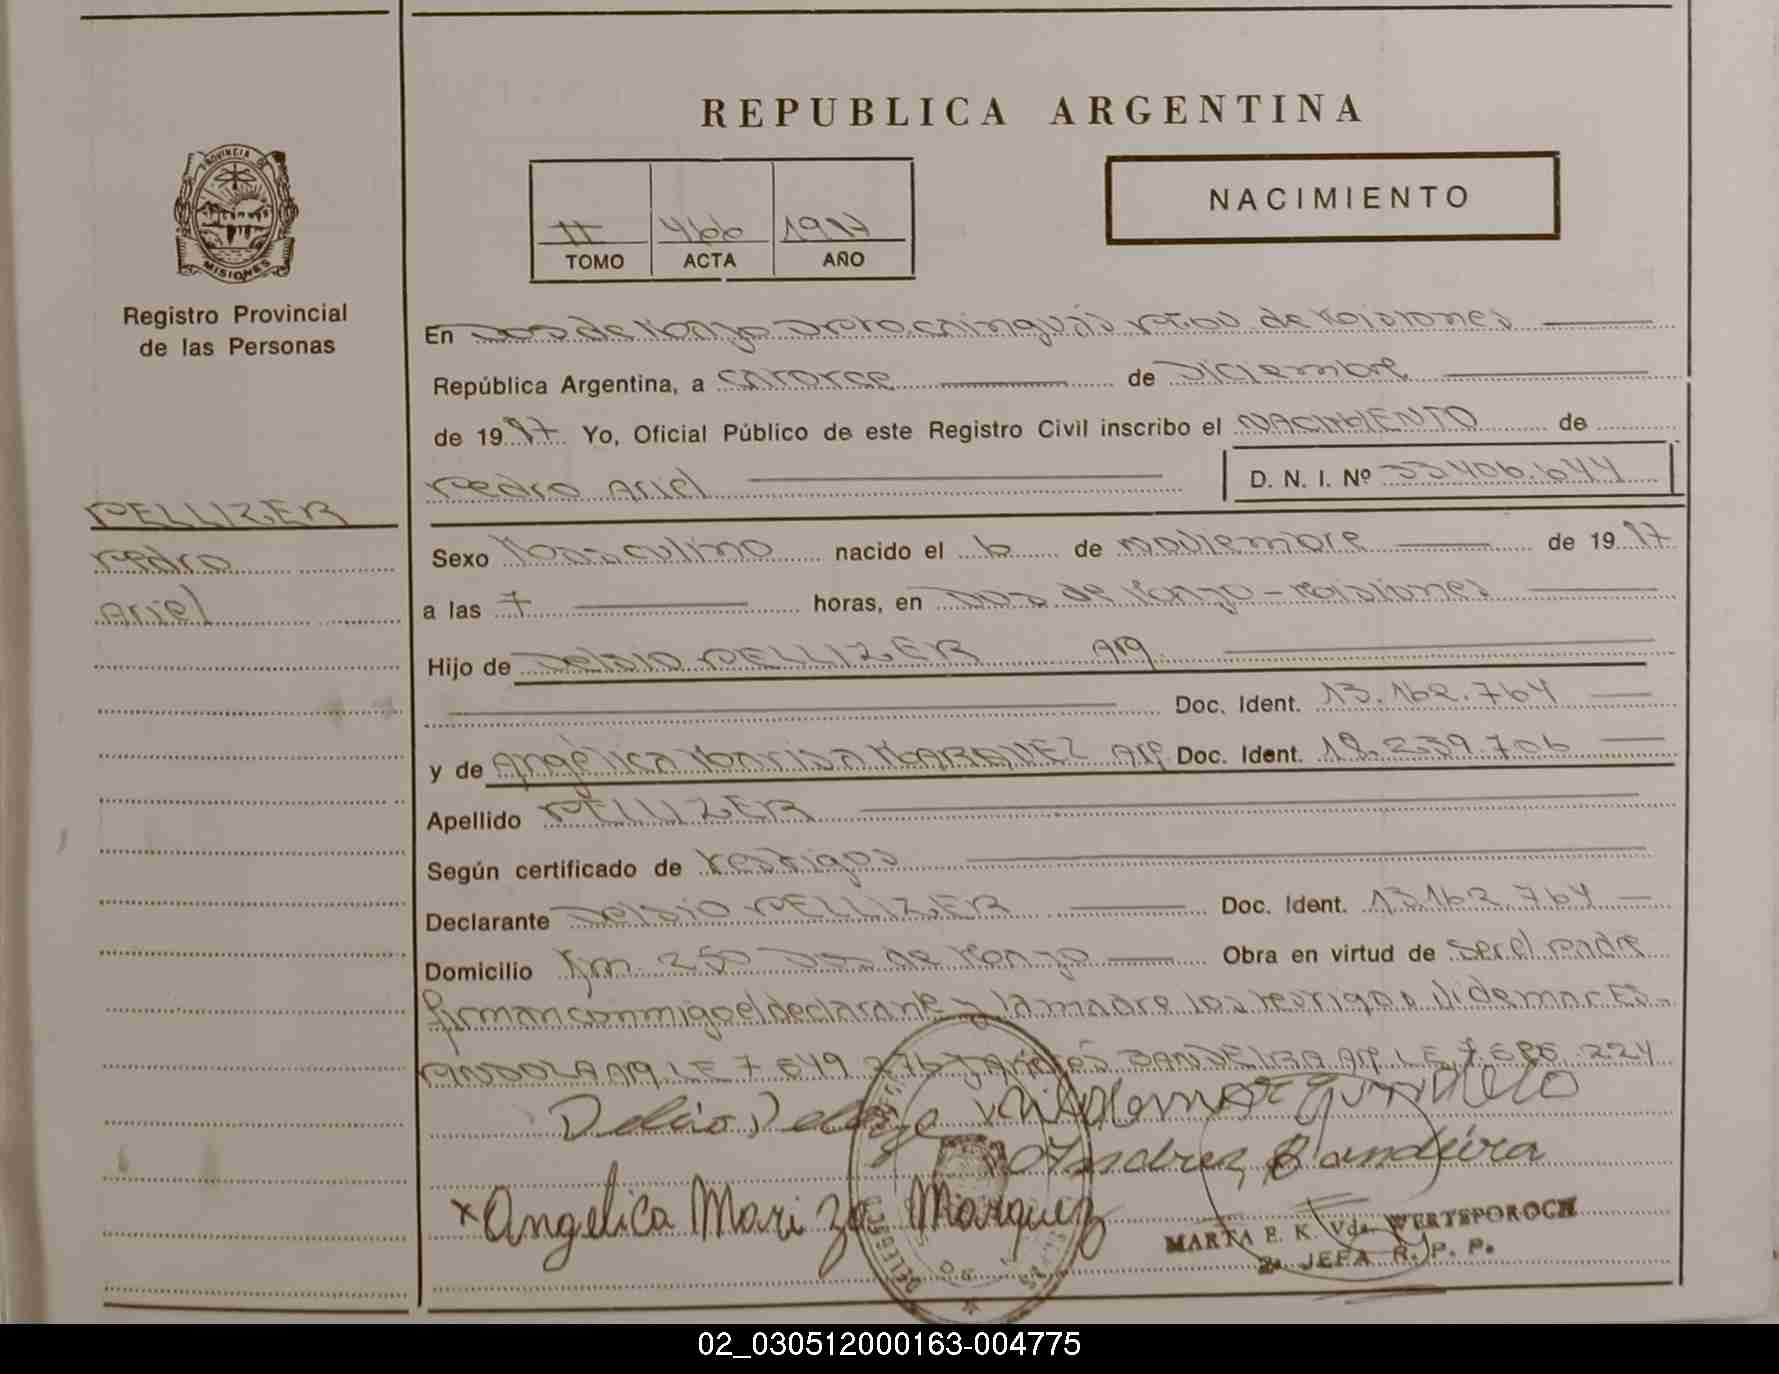 REPUBLICA ARGENTINA
NACIMIENTO
II 466 19
TOMO ACTA AÑO
PROVINCIA DE
MISIONES
Registro Provincial
de las Personas
En Dos de Mayo Dpto Cainguás de Misiones
República Argentina, a catorce de Diciembre
de 19 Yo, Oficial Público de este Registro Civil inscribo el NACIMIENTO de
Pedro Ariel D. N. I. Nº 33.406.644
PELLIZER
Pedro
Ariel
Sexo Masculino nacido el 6 de noviembre de 19
a las 7 horas, en Dos de Mayo - Misiones
Hijo de Delsio PELLIZER Arg
Doc. Ident. 13.162.764
y de Angélica Marisa MARQUEZ Arg Doc. Ident. 18.239.706
Apellido PELLIZER
Según certificado de testigos
Declarante Delsio PELLIZER Doc. Ident. 13.162.764
Domicilio Km 250 Dos de Mayo Obra en virtud de ser el padre
firman conmigo el declarante y la madre los testigos
LE 7 649 276 LE 7 224
Delsio
Andrez Bandeira
x Angelica Mariza Marquez
MARTA E. K. Vda. WERTEPOROCH
2a. JEFA R. P. P.
02_030512000163-004775